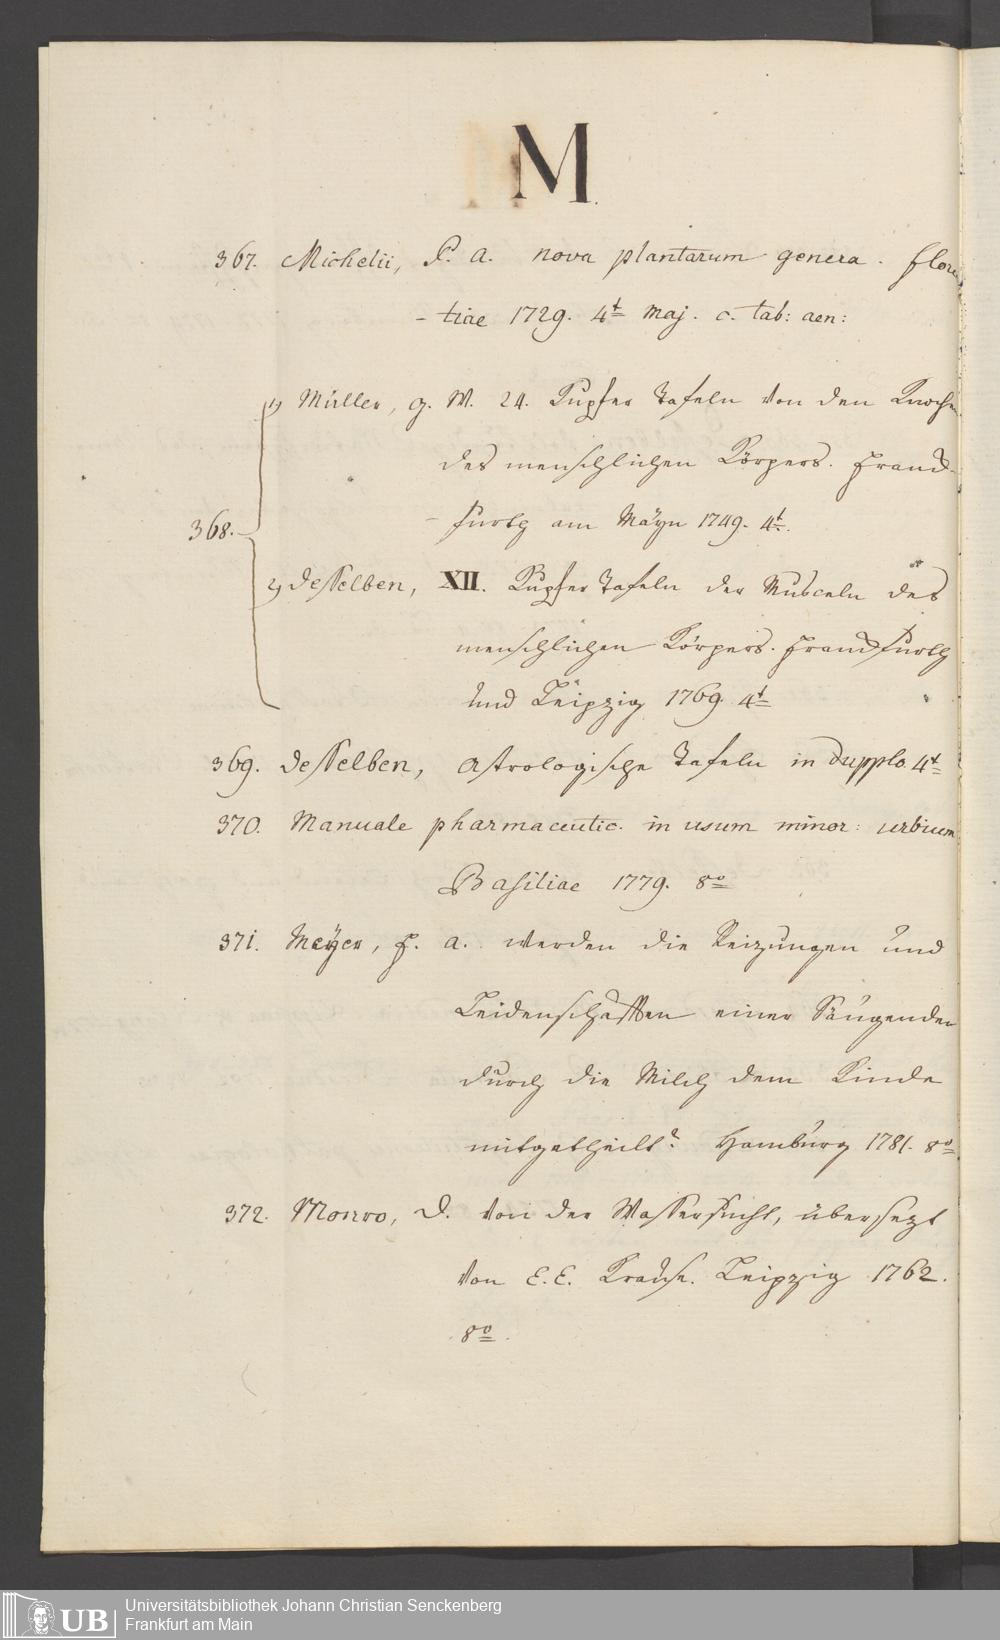 M.
367. Michelii, P. A. nova plantarum genera. Floren
- tiae 1729. 4t maj. c. tab: aen:
1) Müller, G. W. 24. Kupfer Tafeln von den Knochen
des menschlichen Körpers. Franck-
368. - furth am Mäyn 1749. 4t.
2) desselben, XII. Kupfer Tafeln der Musceln des
menschlichen Körpers. Franckfurth
und Leipzig 1769. 4t
369. desselben, astrologische Tafeln in Dupplo. 4t
370. Manuale pharmaceutic. in usum minor: urbium
Basiliae 1779. 8o
371. Meÿer, F. A. werden die Reizungen und
Leidenschafften einer Säugenden
durch die Milch dem Kinde
mitgetheilt? Hamburg 1781. 8o
372. Monro, D. von der Wassersucht, übersezt
von E. E. Krause. Leipzig 1762.
8o.
UB Universitätsbibliothek Johann Christian Senckenberg
Frankfurt am Main